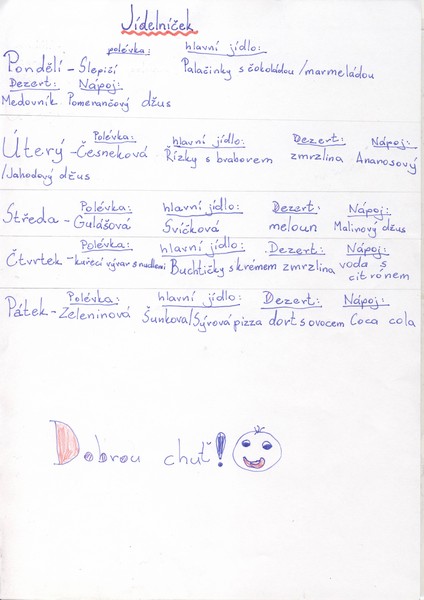 Jídelníček
polévka: hlavní jídlo:
Pondělí - Slepičí Palačinky s čokoládou/marmeládou
Dezert: Nápoj:
Medovník Pomerančový džus
Polévka: hlavní jídlo: Dezert: Nápoj:
Úterý - Česneková Řízky s braborem zmrzlina Ananasový
/Jahodový džus
Polévka: hlavní jídlo: Dezert: Nápoj:
Středa - Gulášová Svíčková meloun Malinový džus
Polévka: hlavní jídlo: Dezert: Nápoj:
Čtvrtek - kuřecí vývar s nudlemi Buchtičky s krémem zmrzlina voda s
citrónem
Polévka: hlavní jídlo: Dezert: Nápoj:
Pátek - Zeleninová Šunková/Sýrová pizza dort s ovocem Coca cola
Dobrou chuť!